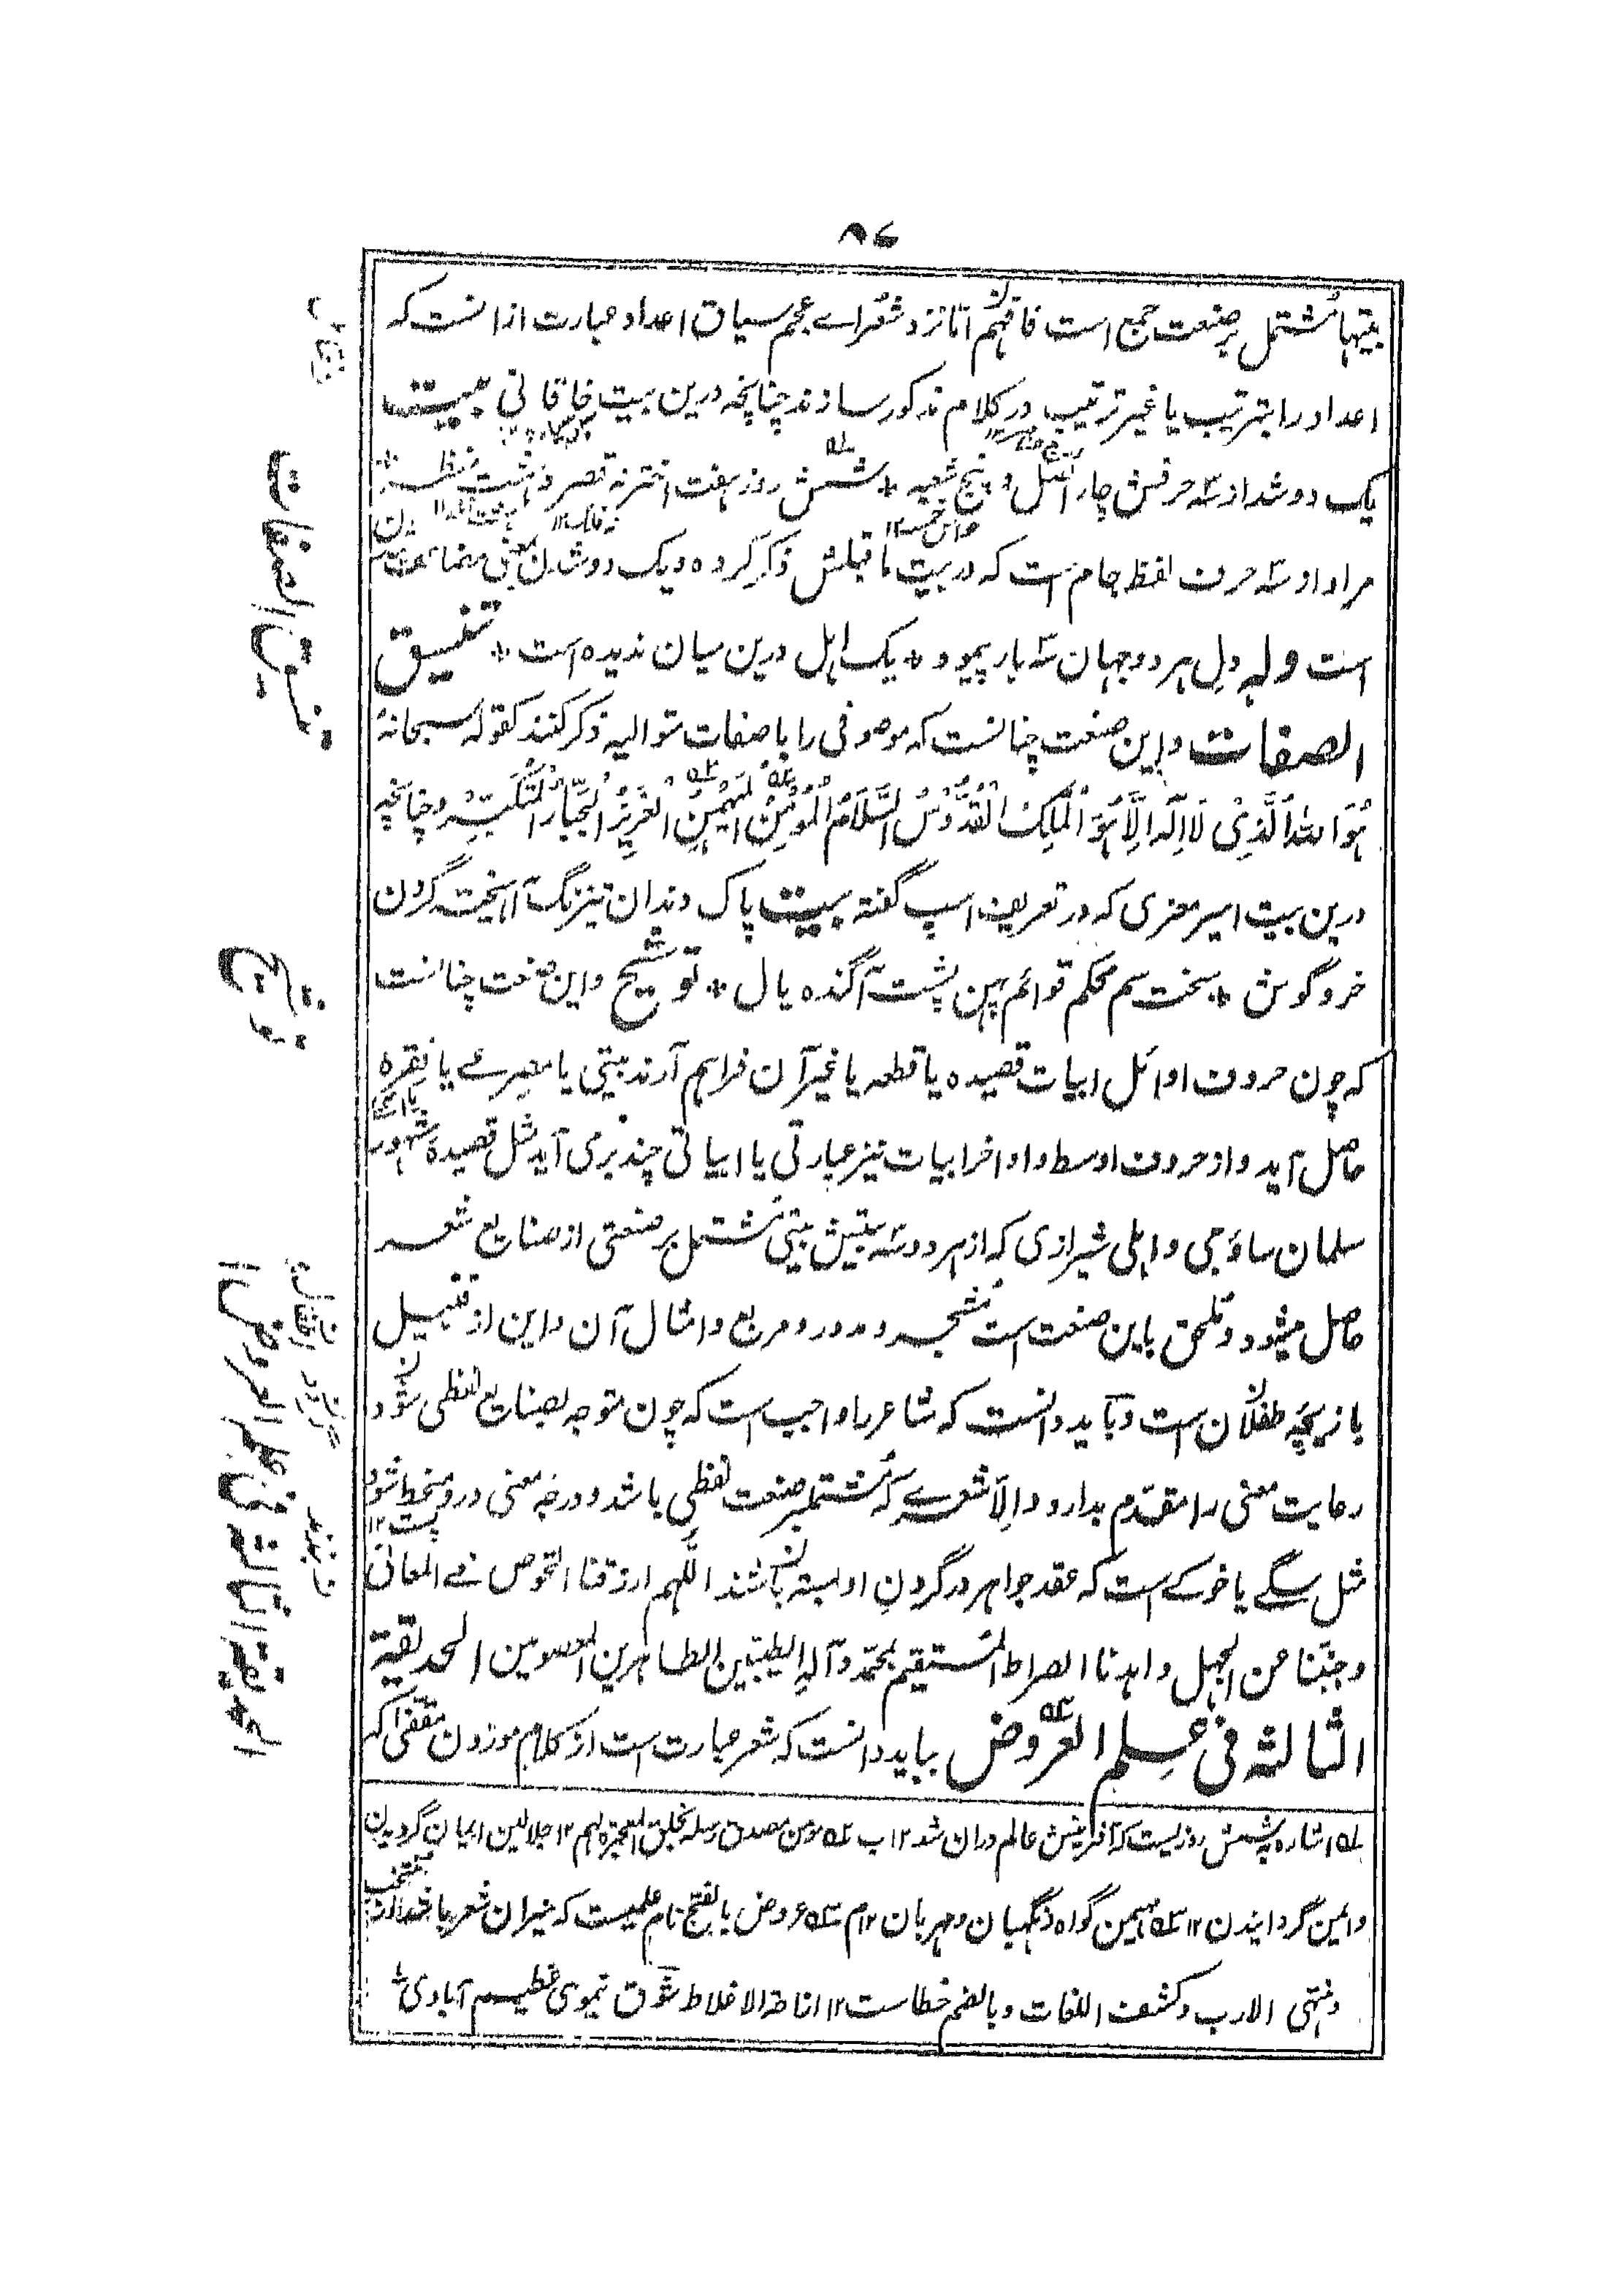 ۸۷
بیتها مشتمل بر صنعت جمع است فافهم اما نزد شعرای عجم سیاق اعداد عبارت از انست که
اعداد را بترتیب یا غیر ترتیب در کلام مذکور سازند چنانچه درین بیت خاقانی بیت
یک دو شد از سه حرفش چار اصل و پنج شعبه * شش روز و هفت اختر نه قصر و هشت منظر
مراد از سه حرف لفظ جام است که در بیت ماقبلش ذکر کرده و یک دو شدن بمعنی
است وله دل هر دو جهان سه بار پیمود * یک اهل درین میان ندیده است * تنسیق
الصفات و این صنعت چنانست که موصوفی را با صفات متوالیه ذکر کنند کقوله سبحانه
هُوَ اللهُ الَّذِیْ لَا اِلٰهَ اِلَّا هُوَ اَلْمَلِکُ الْقُدُّوْسُ السَّلَامُ الْمُؤْمِنُ الْمُهَیْمِنُ الْعَزِیْزُ الْجَبَّارُ الْمُتَکَبِّرُ و چنانچه
درین بیت امیر معزی که در تعریف اسپ گفته بیت پاک دندان تیز تگ آهیخته گردن
خرد گوش * سخت سم محکم قوائم پهن پشت آگنده یال * توشیح و این صنعت چنانست
که چون حروف اوائل ابیات قصیده یا قطعه یا غیر آن فراهم آرند بیتی یا مصرعے یا فقره
حاصل آید و از حروف اوسط و اواخر ابیات نیز عبارتی یا ابیاتی چند بر می آید مثل قصیدۂ مشهور
سلمان ساؤجی و اهلی شیرازی که از هر دو سه بیتش بیتی مشتمل بر صنعتی از صنایع شعر
حاصل میشود و ملحق باین صنعت است مشجر و مدور و مربع و امثال آن و این از قبیل
بازیچه طفلان است و باید دانست که شاعر را واجب است که چون متوجه بصنایع لفظی شود
رعایت معنی را مقدم بدارد و الّا شعرے که مشتملبر صنعت لفظی باشد و درجۂ معنی درو منحط شود
مثل سگے یا خوکے است که عقد جواهر در گردن او بسته باشند اللّهم ارزقنا الخوص فے المعانی
و جنّبنا عن الجهل و اهدنا الصراط المستقیم بمحمّد و آله الطیبین الطاهرین المعصومین الحدیقة
الثالثة فی علم العروض بباید دانست که شعر عبارت است از کلام موزون مقفی که
له اشاره بشش روزیست که آفرینش عالم دران شد ۱۲ ب ۲ه مومن مصدق رسله بخلق المعجزة لهم ۱۲ جلالین ایمان گرویدن
و ایمن گردانیدن ۱۲ ۳ه مهیمن گواه و نگهبان و مهربان ۱۲ م ۴ه عروض بالفتح نام علمیست که میزان شعر باشد از منتخب
و منتهی الارب و کشف اللغات و بالضم خطاست ۱۲ اناطة الاغلاط شوق نیموی عظیم آبادی
تنسیق الصفات
توشیح
الحدیقة الثالثة فی علم العروض